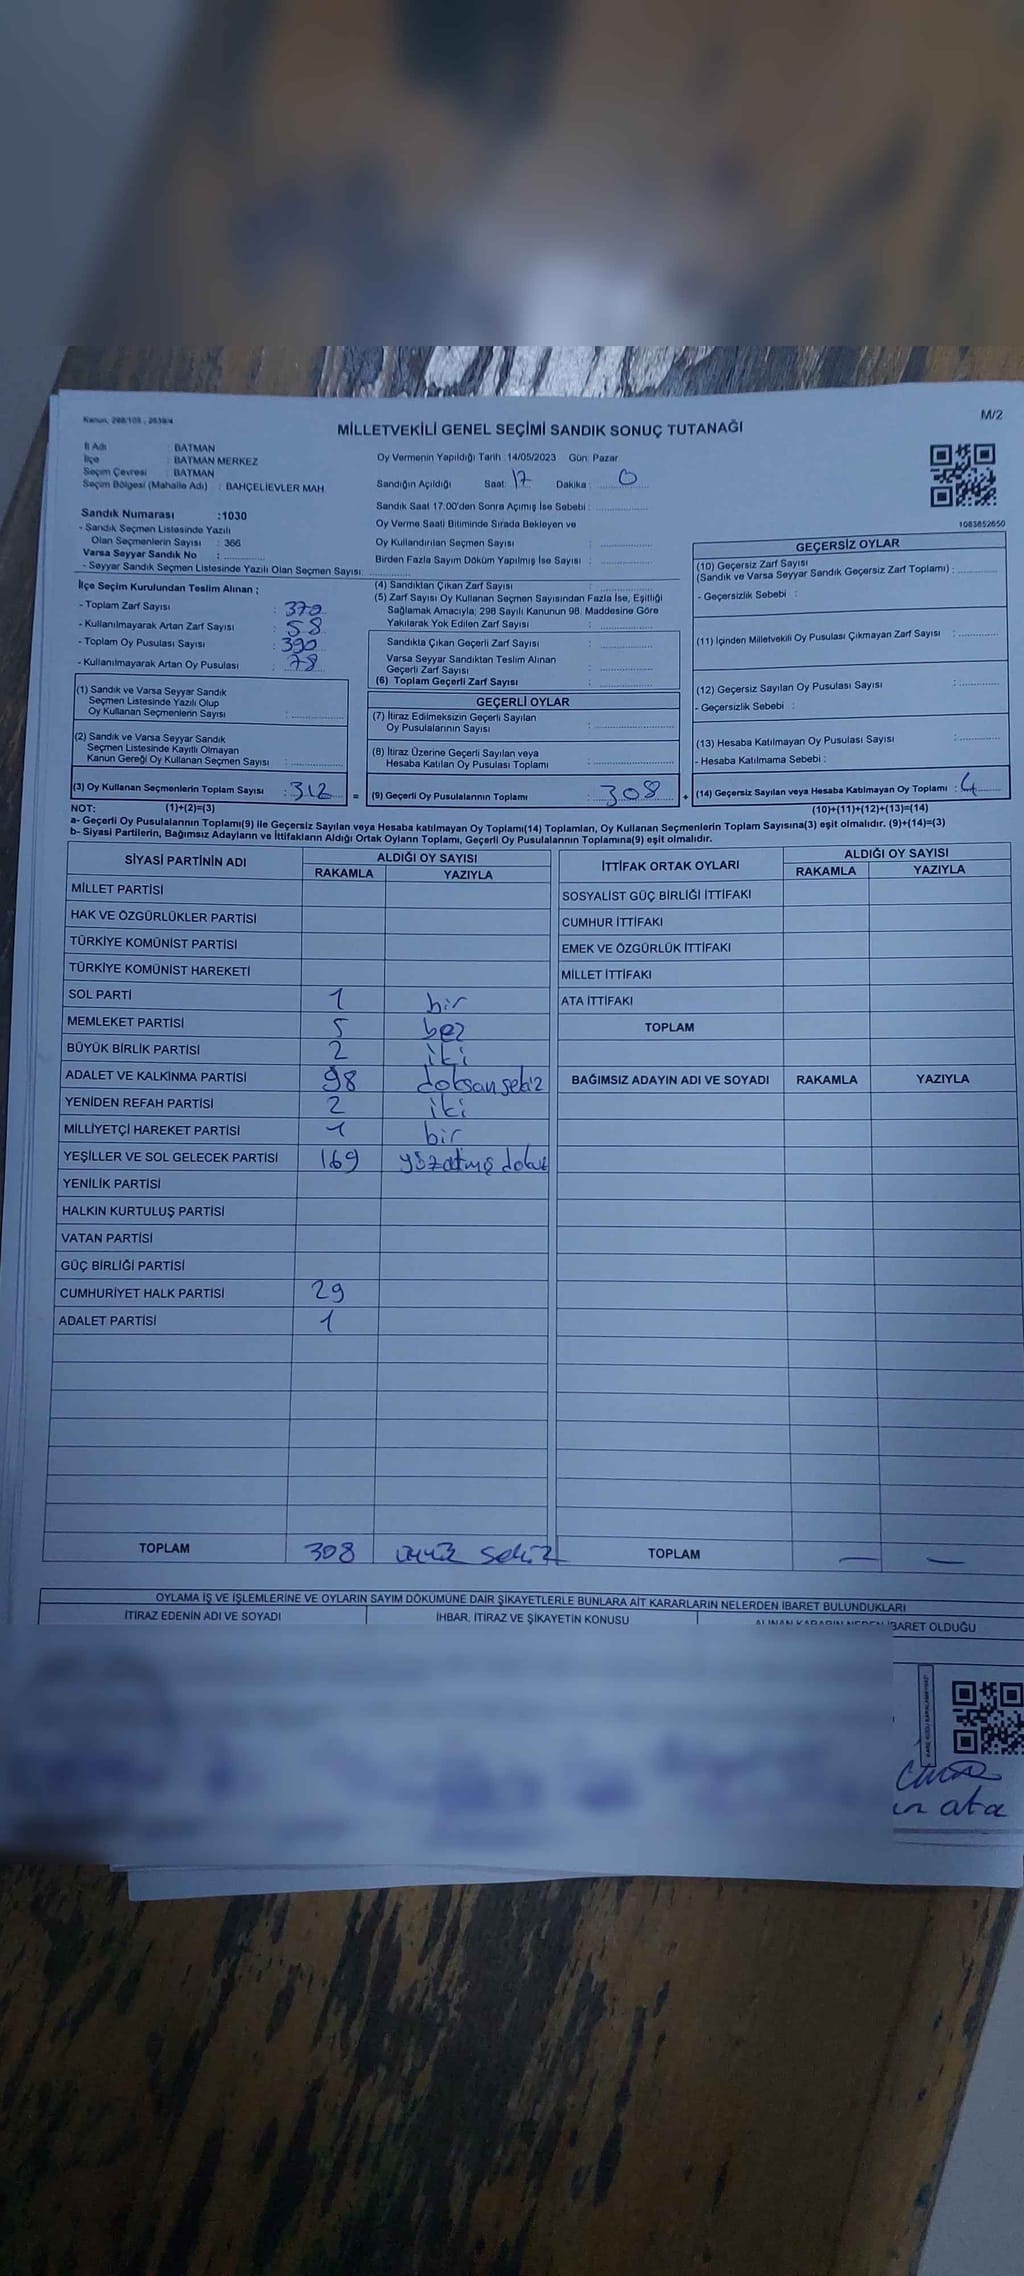 Kanun, 298/105 , 2839/4
M/2
MİLLETVEKİLİ GENEL SEÇİMİ SANDIK SONUÇ TUTANAĞI
İl Adı : BATMAN
İlçe : BATMAN MERKEZ
Seçim Çevresi : BATMAN
Seçim Bölgesi (Mahalle Adı) : BAHÇELİEVLER MAH.
Oy Vermenin Yapıldığı Tarih :14/05/2023 Gün: Pazar
Sandığın Açıldığı Saat: 17 Dakika : 0
Sandık Saat 17:00'den Sonra Açımış İse Sebebi :
Oy Verme Saati Bitiminde Sırada Bekleyen ve
Oy Kullandırılan Seçmen Sayısı :
Birden Fazla Sayım Döküm Yapılmış İse Sayısı :
1083852650
Sandık Numarası :1030
- Sandık Seçmen Listesinde Yazılı
Olan Seçmenlerin Sayısı : 366
Varsa Seyyar Sandık No :
- Seyyar Sandık Seçmen Listesinde Yazılı Olan Seçmen Sayısı:
İlçe Seçim Kurulundan Teslim Alınan ;
- Toplam Zarf Sayısı : 370
- Kullanılmayarak Artan Zarf Sayısı : 58
- Toplam Oy Pusulası Sayısı : 390
- Kullanılmayarak Artan Oy Pusulası : 78
(1) Sandık ve Varsa Seyyar Sandık
Seçmen Listesinde Yazılı Olup
Oy Kullanan Seçmenlerin Sayısı :
(2) Sandık ve Varsa Seyyar Sandık
Seçmen Listesinde Kayıtlı Olmayan
Kanun Gereği Oy Kullanan Seçmen Sayısı :
(3) Oy Kullanan Seçmenlerin Toplam Sayısı : 312 =
(4) Sandıktan Çıkan Zarf Sayısı :
(5) Zarf Sayısı Oy Kullanan Seçmen Sayısından Fazla İse, Eşitliği
Sağlamak Amacıyla; 298 Sayılı Kanunun 98. Maddesine Göre
Yakılarak Yok Edilen Zarf Sayısı :
Sandıkla Çıkan Geçerli Zarf Sayısı :
Varsa Seyyar Sandıktan Teslim Alınan
Geçerli Zarf Sayısı :
(6) Toplam Geçerli Zarf Sayısı :
GEÇERLİ OYLAR
(7) İtiraz Edilmeksizin Geçerli Sayılan
Oy Pusulalarının Sayısı :
(8) İtiraz Üzerine Geçerli Sayılan veya
Hesaba Katılan Oy Pusulası Toplamı :
(9) Geçerli Oy Pusulalarının Toplamı : 308 +
GEÇERSİZ OYLAR
(10) Geçersiz Zarf Sayısı
(Sandık ve Varsa Seyyar Sandık Geçersiz Zarf Toplamı) :
- Geçersizlik Sebebi :
(11) İçinden Milletvekili Oy Pusulası Çıkmayan Zarf Sayısı :
(12) Geçersiz Sayılan Oy Pusulası Sayısı :
- Geçersizlik Sebebi :
(13) Hesaba Katılmayan Oy Pusulası Sayısı :
- Hesaba Katılmama Sebebi :
(14) Geçersiz Sayılan veya Hesaba Katılmayan Oy Toplamı : 4
NOT: (1)+(2)=(3) (10)+(11)+(12)+(13)=(14)
a- Geçerli Oy Pusulalarının Toplamı(9) ile Geçersiz Sayılan veya Hesaba katılmayan Oy Toplamı(14) Toplamları, Oy Kullanan Seçmenlerin Toplam Sayısına(3) eşit olmalıdır. (9)+(14)=(3)
b- Siyasi Partilerin, Bağımsız Adayların ve İttifakların Aldığı Ortak Oyların Toplamı, Geçerli Oy Pusulalarının Toplamına(9) eşit olmalıdır.
SİYASİ PARTİNİN ADI ALDIĞI OY SAYISI
RAKAMLA YAZIYLA
MİLLET PARTİSİ
HAK VE ÖZGÜRLÜKLER PARTİSİ
TÜRKİYE KOMÜNİST PARTİSİ
TÜRKİYE KOMÜNİST HAREKETİ
SOL PARTİ 1 bir
MEMLEKET PARTİSİ 5 beş
BÜYÜK BİRLİK PARTİSİ 2 iki
ADALET VE KALKINMA PARTİSİ 98 doksansekiz
YENİDEN REFAH PARTİSİ 2 iki
MİLLİYETÇİ HAREKET PARTİSİ 1 bir
YEŞİLLER VE SOL GELECEK PARTİSİ 169
YENİLİK PARTİSİ
HALKIN KURTULUŞ PARTİSİ
VATAN PARTİSİ
GÜÇ BİRLİĞİ PARTİSİ
CUMHURİYET HALK PARTİSİ 29
ADALET PARTİSİ 1
TOPLAM 308 üçyüz sekiz
İTTİFAK ORTAK OYLARI ALDIĞI OY SAYISI
RAKAMLA YAZIYLA
SOSYALİST GÜÇ BİRLİĞİ İTTİFAKI
CUMHUR İTTİFAKI
EMEK VE ÖZGÜRLÜK İTTİFAKI
MİLLET İTTİFAKI
ATA İTTİFAKI
TOPLAM
BAĞIMSIZ ADAYIN ADI VE SOYADI RAKAMLA YAZIYLA
TOPLAM — —
OYLAMA İŞ VE İŞLEMLERİNE VE OYLARIN SAYIM DÖKÜMÜNE DAİR ŞİKAYETLERLE BUNLARA AİT KARARLARIN NELERDEN İBARET BULUNDUKLARI
İTİRAZ EDENİN ADI VE SOYADI İHBAR, İTİRAZ VE ŞİKAYETİN KONUSU ALINAN KARARIN NEDEN İBARET OLDUĞU
ata